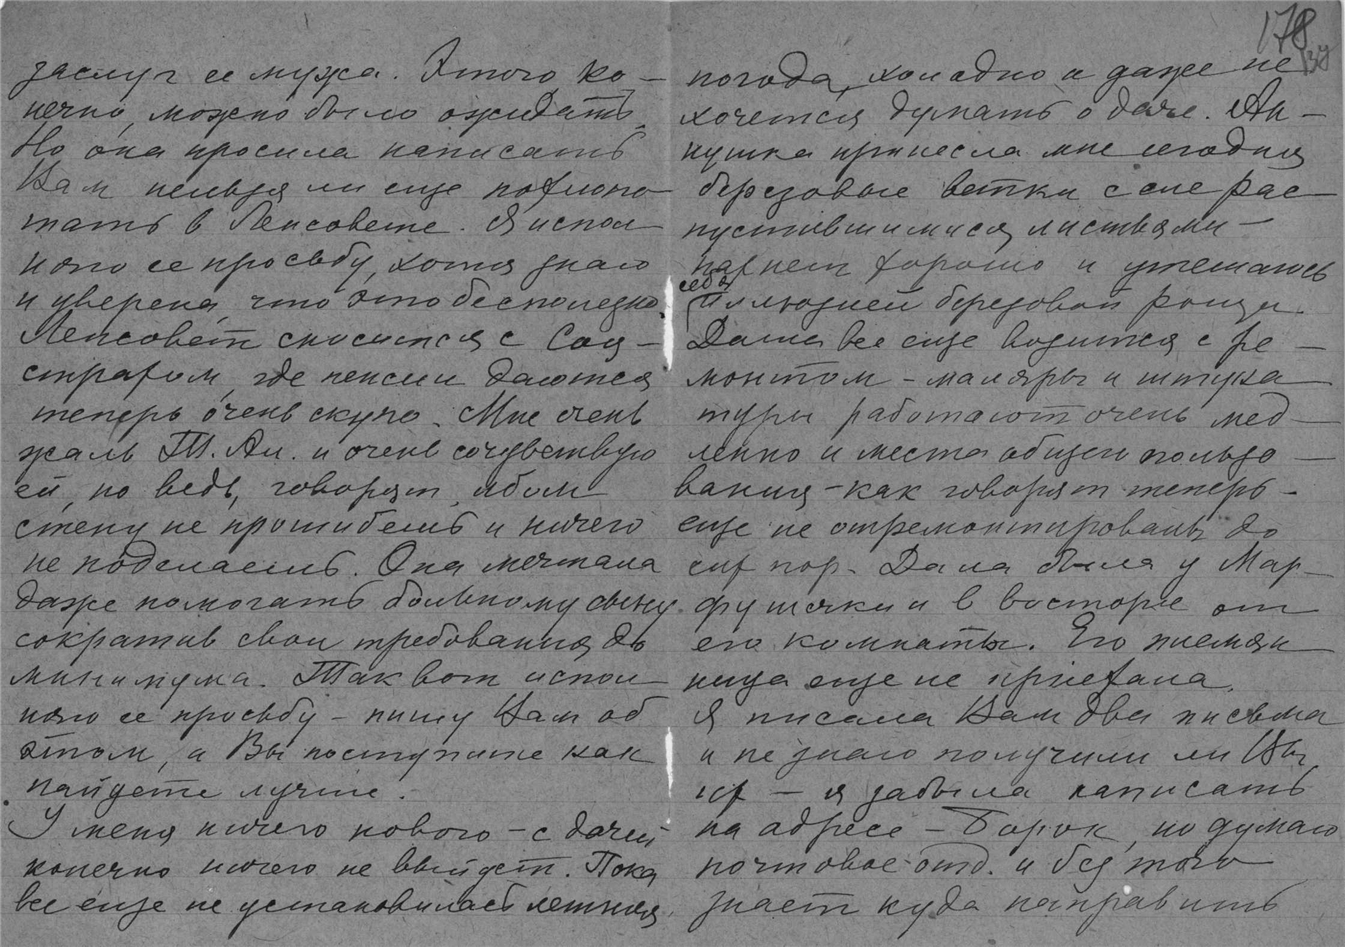 заслуг ее мужа. Этого ко-
нечно, можно было ожидать.
Но она просила написать
Вам нельзя ли еще похлопо-
тать в Ленсовете. Я испол-
няю ее просьбу, хотя знаю
и уверена, что это бесполезно
Ленсовет сносится с Соц-
страхом, где пенсии даются
теперь очень скупо. Мне очень
жаль Т. Ан. и очень сочувствую
ей, но ведь, говорят, лбом
стену не прошибешь и ничего
не поделаешь. Она мечтала
даже помогать больному сыну
сократив свои требования до
минимума. Так вот испол-
няю ее просьбу - пишу Вам об
этом, а Вы поступите как
найдете лучше.
У меня ничего нового - с дачей
конечно ничего не выйдет. Пока
все еще не установилась летняя
178
погода, холодно и даже не
хочется думать о даче. Ан-
нушка принесла мне сегодня
березовые ветки с еле рас-
пустившимися листьями -
пахнет хорошо и утешаюсь
себя
иллюзией березовой рощи.
Даша все еще возится с ре-
монтом - маляры и штука-
туры работают очень мед-
ленно и места общего пользо-
вания - как говорят теперь -
еще не отремонтированы до
сих пор. Дала была у Мар-
фушки и в восторге от
его комнаты. Его племян
ница еще не приехала.
Я писала Вам два письма
и не знаю получили ли Вы
их - я забыла написать
на адресе - Борок, но думаю
почтовое отд. и без того
знает куда направить